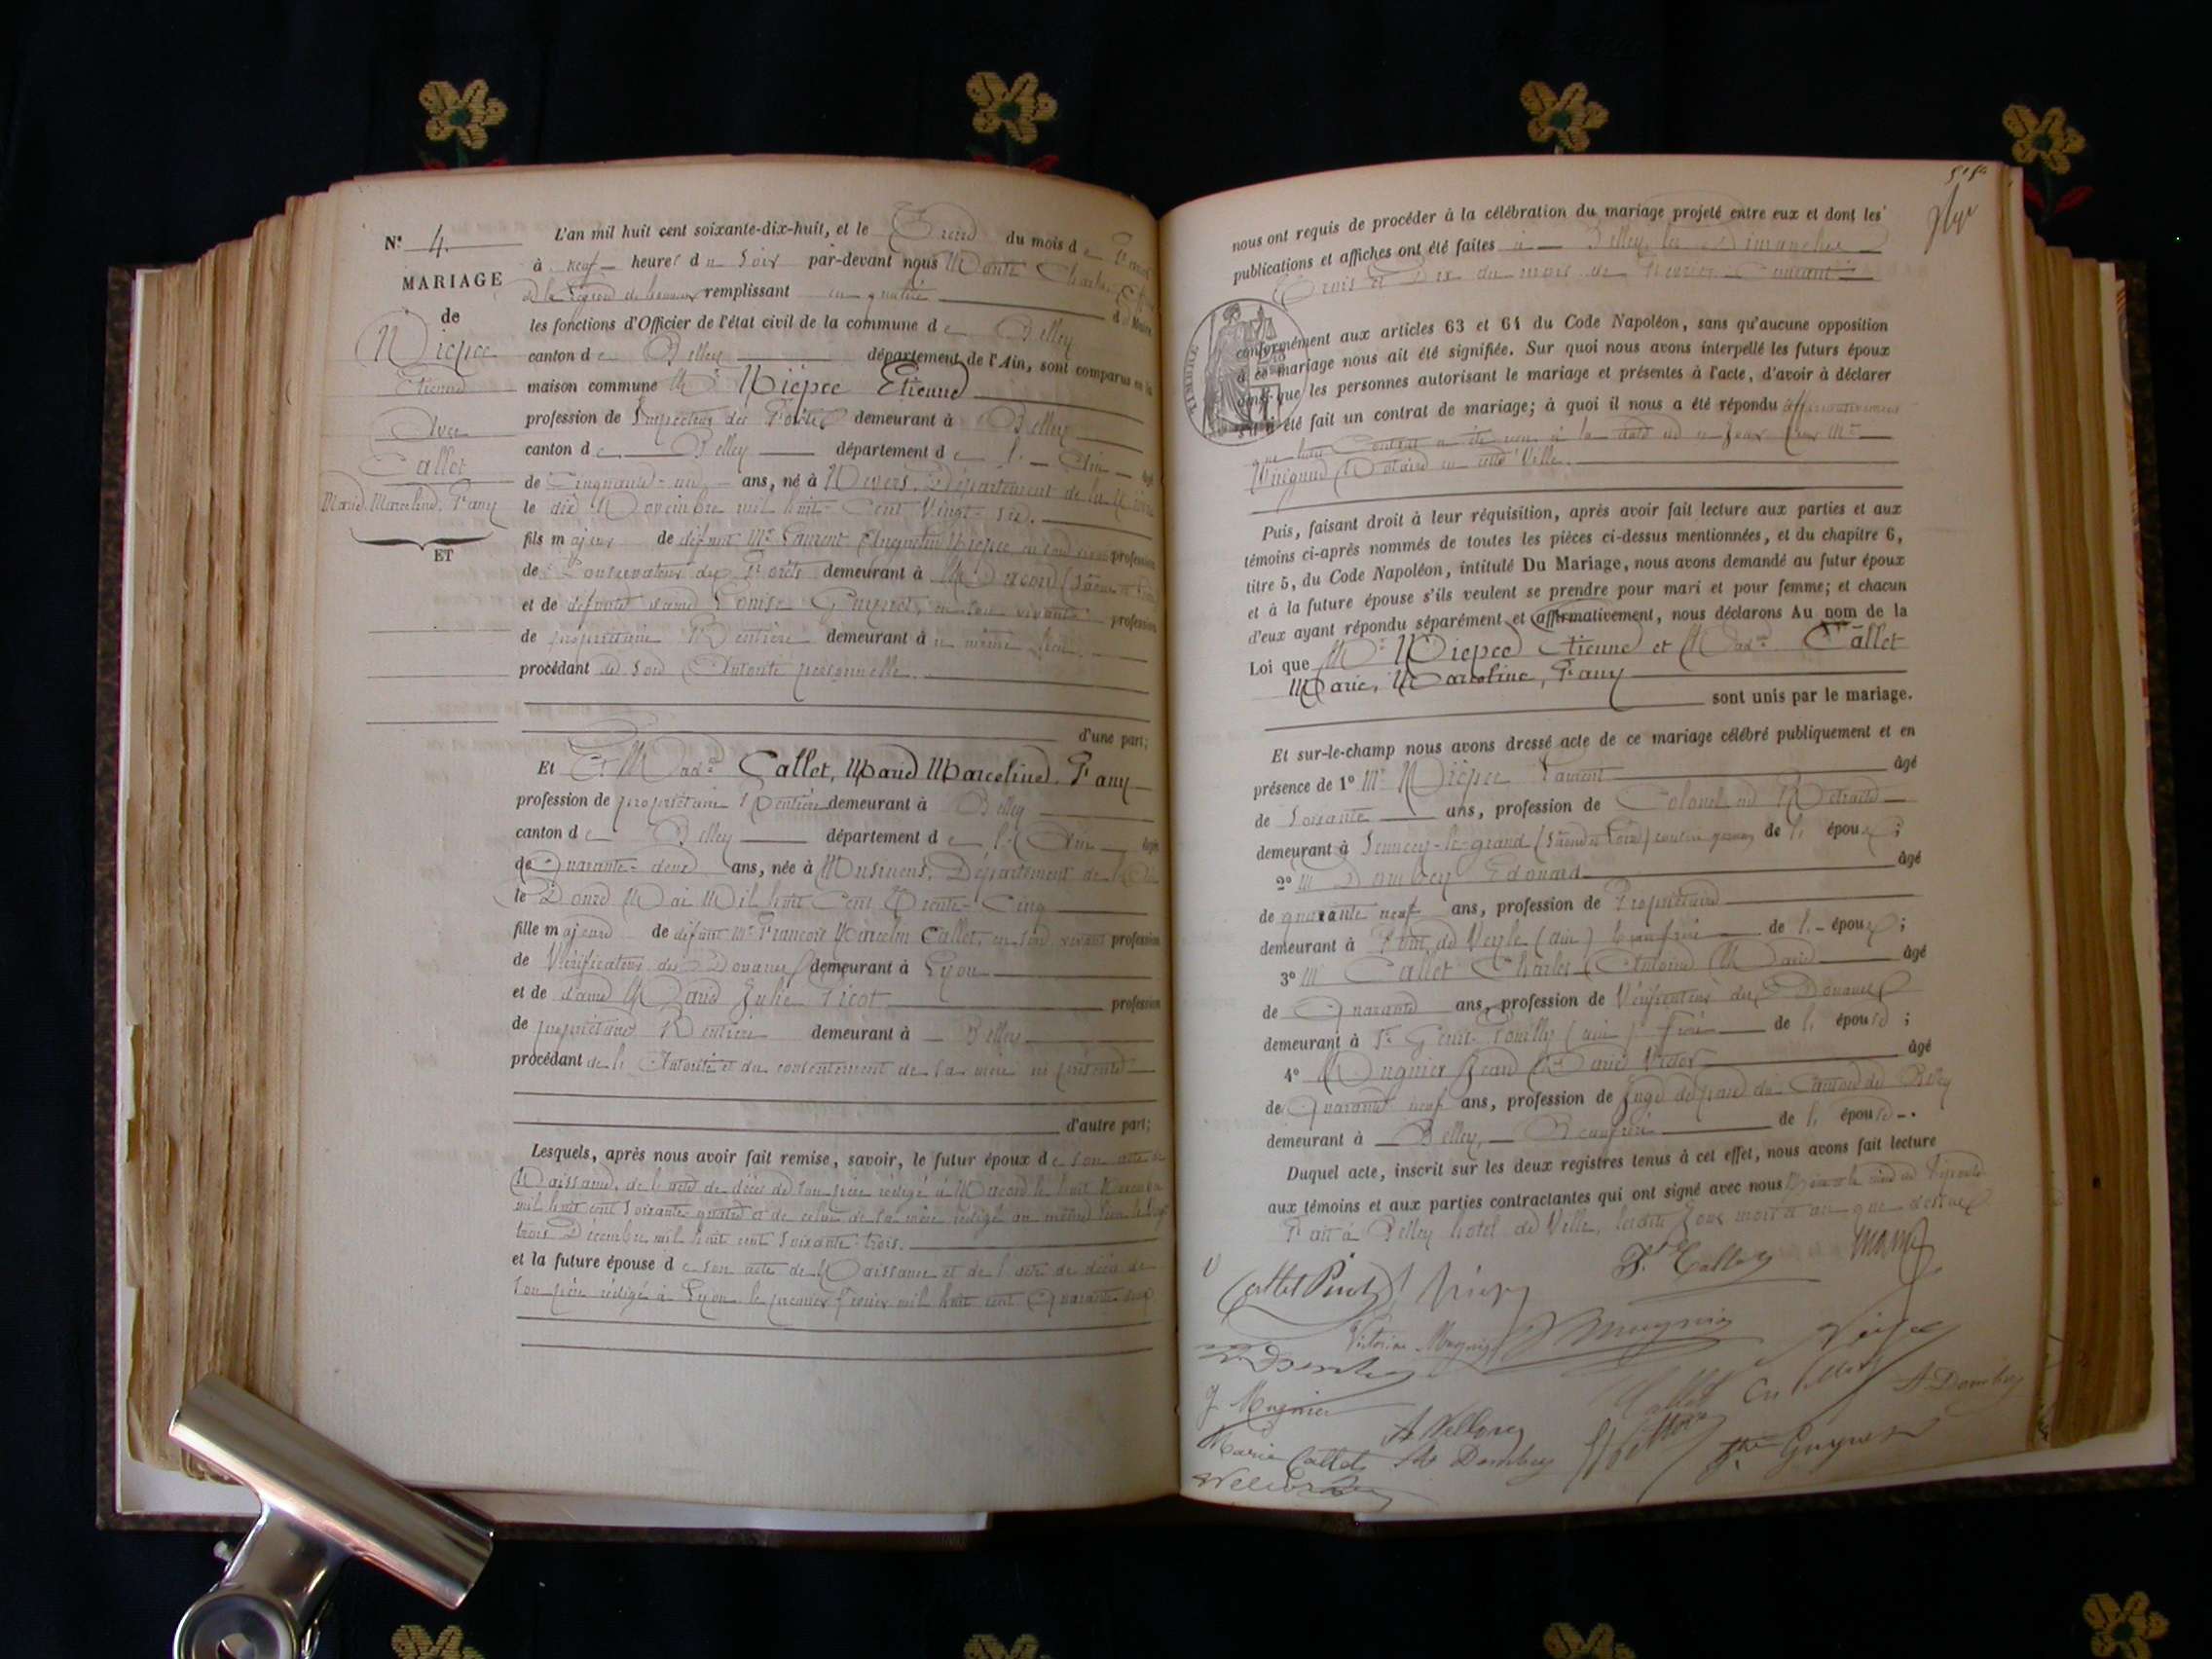 N° 4.
MARIAGE
de
Niepce
Etienne
Avec
Callet
Marie, Marceline, Fany
ET
L'an mil huit cent soixante-dix-huit, et le Treize du mois de
à neuf heures du Soir par-devant nous Charles
de la Légion d'honneur remplissant en qualité de Maire
les fonctions d'Officier de l'état civil de la commune de Belley
canton de Belley département de l'Ain, sont comparus en la
maison commune Mr Niépce Etienne
profession de Inspecteur des Forêts demeurant à Belley
canton de Belley département de l'Ain âgé
de Cinquante-un ans, né à Nevers, Département de la Nièvre
le dix Novembre mil huit Cent Vingt-six.
fils majeur de défunt Mr Laurent Augustin Niepce en son vivant profession
de Conservateur des Forêts demeurant à Mâcon (Saône et Loire)
et de défunte dame Louise Gueyrot, en son vivant profession
de propriétaire Rentière demeurant au même lieu.
procédant de son Autorité personnelle.
d'une part;
Et Mad.e Callet, Marie Marceline, Fany
profession de propriétaire Rentière demeurant à Belley
canton de Belley département de l'Ain âgée
de Quarante-deux ans, née à Musinens, Département de l'Ain
le Douze Mai Mil huit Cent Trente-Cinq
fille majeure de défunt Mr François Marcelin Callet, en son vivant profession
de Vérificateur des Douanes demeurant à Lyon
et de dame Marie Julie Picot profession
de propriétaire Rentière demeurant à Belley
procédant de l'Autorité et du consentement de sa mère ici présente
d'autre part;
Lesquels, après nous avoir fait remise, savoir, le futur époux de son acte de
Naissance, de l'acte de décès de son père rédigé à Mâcon le huit
mil huit cent soixante-quatre et de celui de sa mère rédigé au même lieu le vingt
trois Décembre mil huit cent soixante-trois.
et la future épouse de son acte de Naissance et de l'acte de décès de
son père rédigé à Lyon le premier Février mil huit cent Quarante deux
nous ont requis de procéder à la célébration du mariage projeté entre eux et dont les
publications et affiches ont été faites à Belley, les Dimanches
Trois et Dix du mois de Février Courant
TIMBRE
conformément aux articles 63 et 64 du Code Napoléon, sans qu'aucune opposition
à ce mariage nous ait été signifiée. Sur quoi nous avons interpellé les futurs époux
ainsi que les personnes autorisant le mariage et présentes à l'acte, d'avoir à déclarer
s'il a été fait un contrat de mariage; à quoi il nous a été répondu affirmativement
que leur Contrat a été reçu à la date de ce jour par Me
Notaire en cette Ville.
Puis, faisant droit à leur réquisition, après avoir fait lecture aux parties et aux
témoins ci-après nommés de toutes les pièces ci-dessus mentionnées, et du chapitre 6,
titre 5, du Code Napoléon, intitulé Du Mariage, nous avons demandé au futur époux
et à la future épouse s'ils veulent se prendre pour mari et pour femme; et chacun
d'eux ayant répondu séparément et affirmativement, nous déclarons Au nom de la
Loi que Mr Niepce Etienne et Mad.e Callet
Marie, Marceline, Fany
sont unis par le mariage.
Et sur-le-champ nous avons dressé acte de ce mariage célébré publiquement et en
présence de 1° Mr Niépce Laurent âgé
de Soixante ans, profession de Colonel en Retraite
demeurant à Sennecey-le-grand (Saône et Loire) cousin germain de l'époux;
2° M Dombey Edouard âgé
de quarante neuf ans, profession de Propriétaire
demeurant à Pont de Veyle (ain) beaufrère de l'époux;
3° M Callet Charles Antoine Marie âgé
de Quarante ans, profession de Vérificateur des Douanes
demeurant à St Genis Pouilly (ain) frère de l'épouse;
4° Mugnier Jean Marie Victor âgé
de Quarante neuf ans, profession de Juge de paix du Canton de Belley
demeurant à Belley, Beaufrère de l'épouse.
Duquel acte, inscrit sur les deux registres tenus à cet effet, nous avons fait lecture
aux témoins et aux parties contractantes qui ont signé avec nous
Fait à Belley hotel de Ville, lesdits Jour mois et an que dessus
Callet Picot Niépce F. Callet
Victorine Mugnier Mugnier Niépce
Dombey Callet A. Dombey
J. Mugnier
Marie Callet Dombey